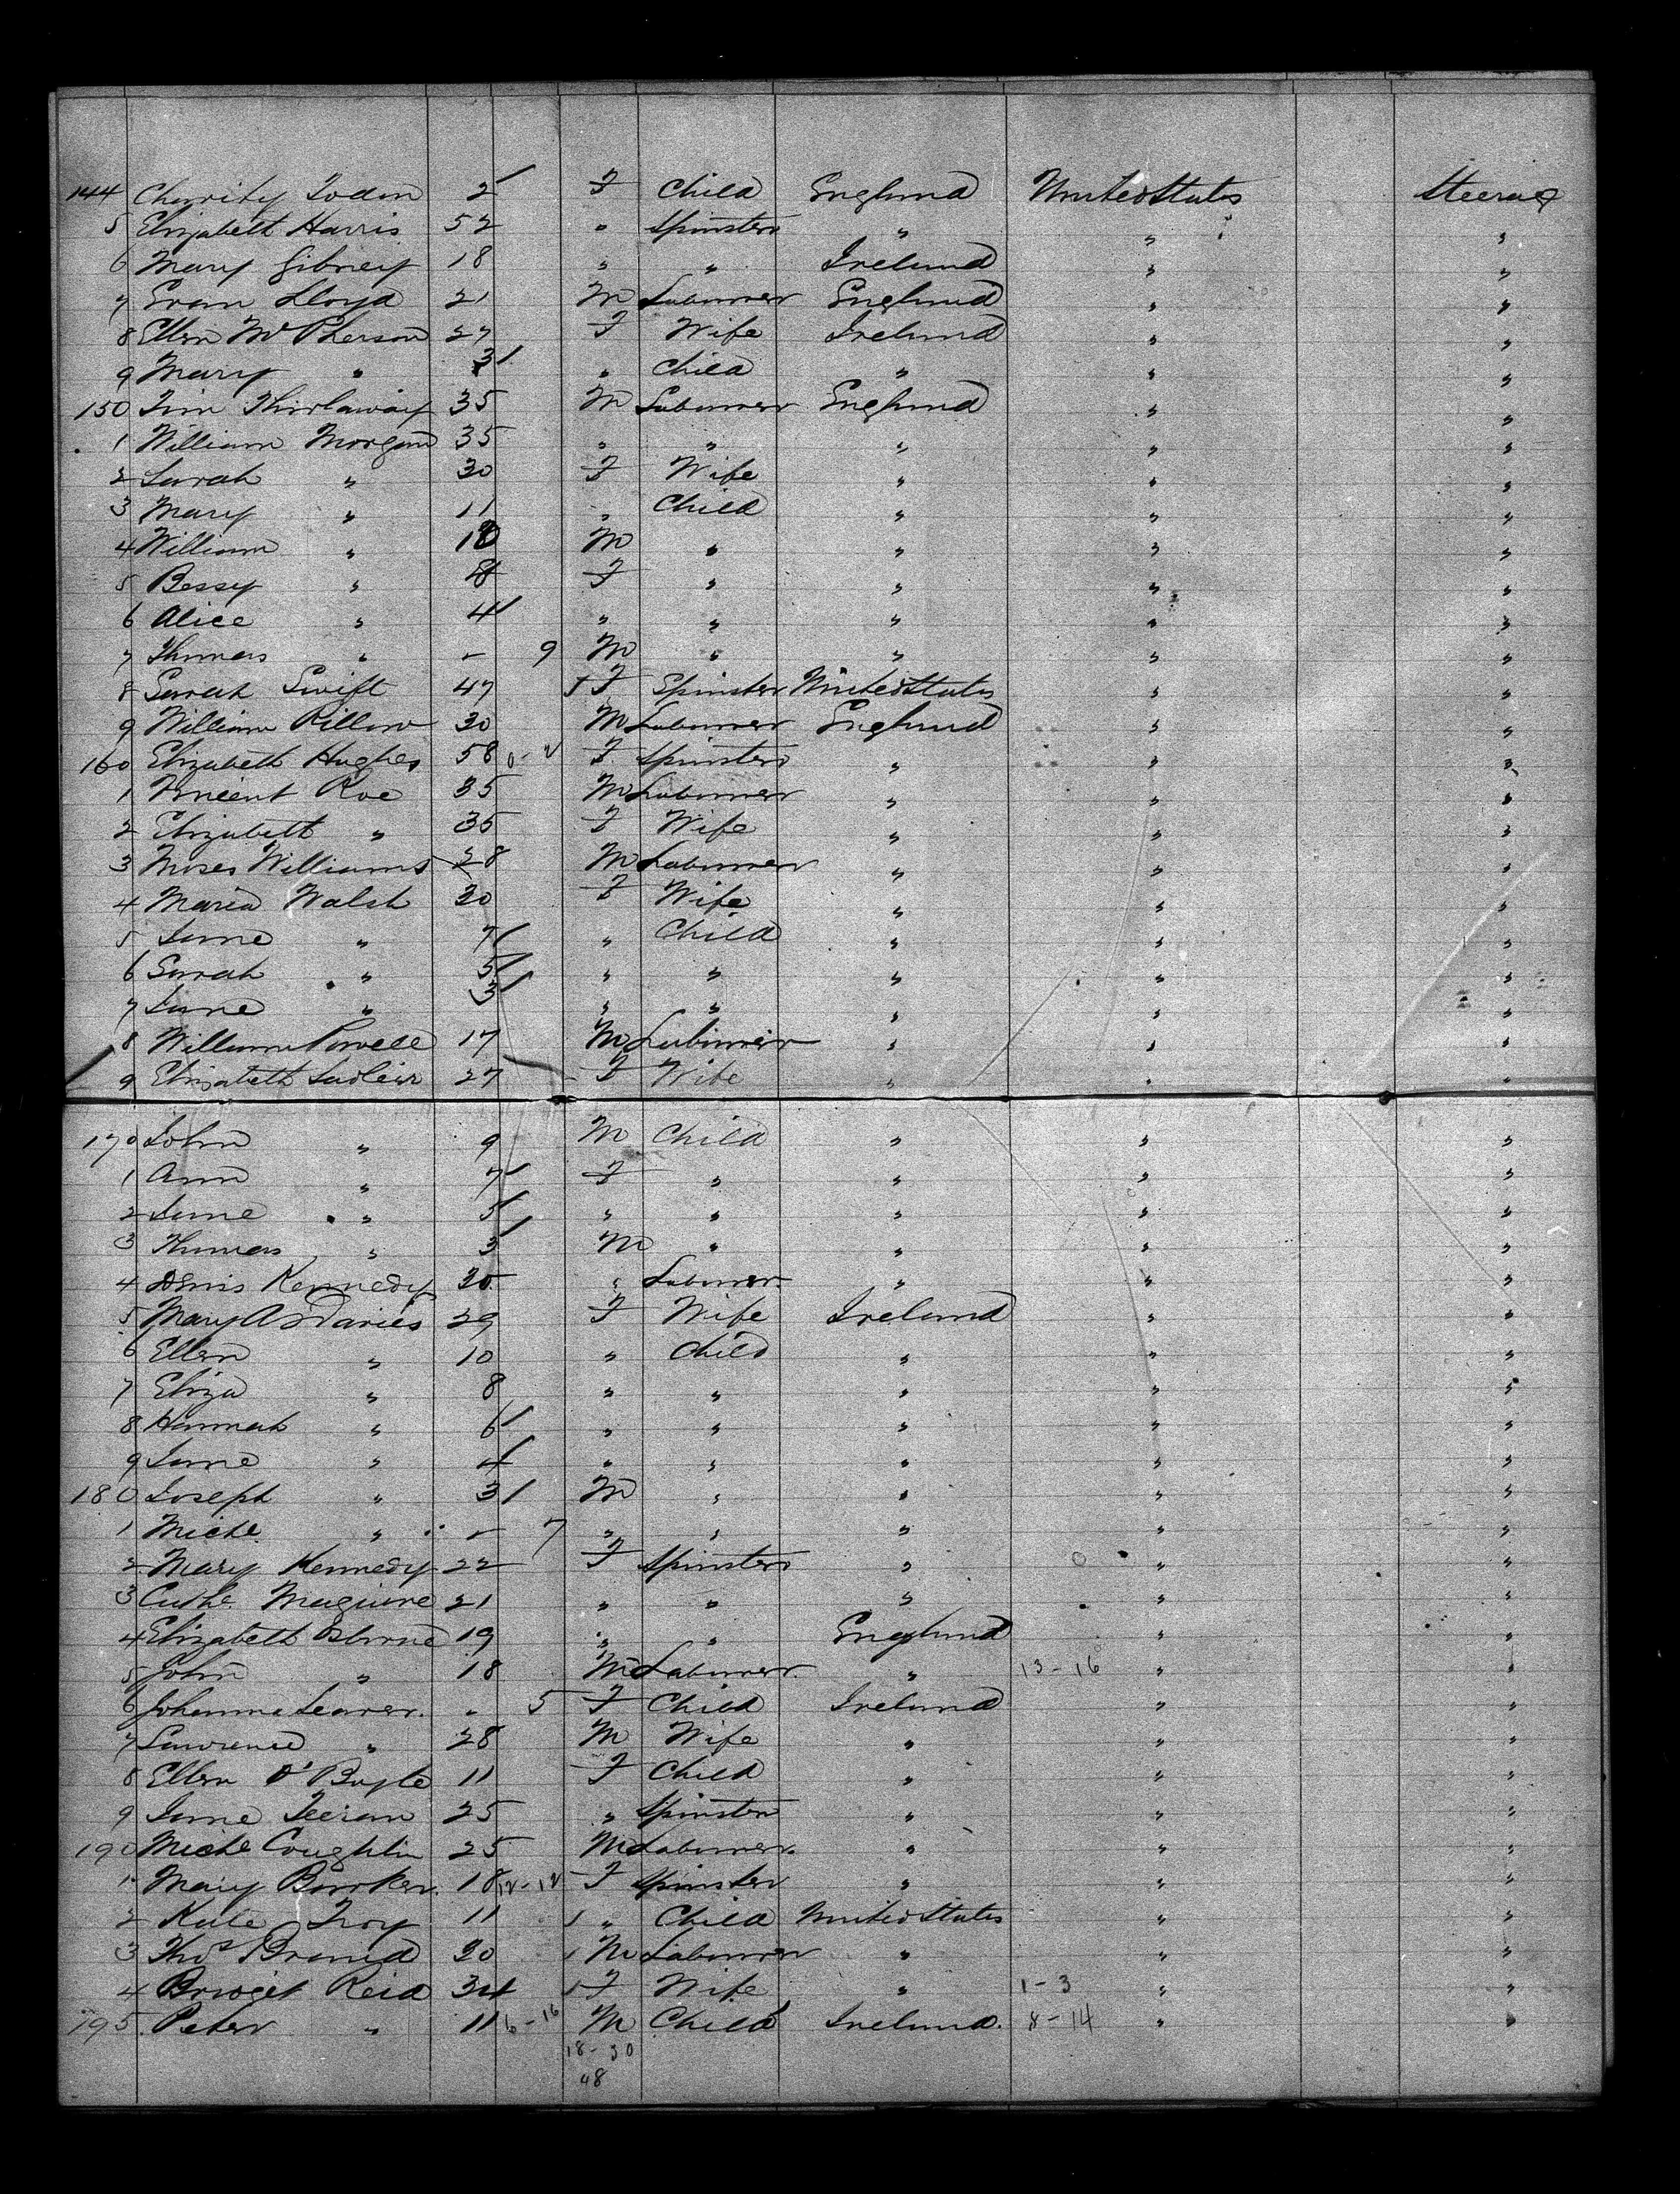 144 Charity Todan 2 F Child England United States Steerage
5 Elizabeth Harris 52 " Spinster " " "
6 Mary Gibney 18 " " Ireland " "
7 Evan Lloyd 21 M Labourer England " "
8 Ellen McPherson 27 F Wife Ireland " "
9 Mary " 3 " Child " " "
150 Tim Thirlaway 35 M Labourer England " "
1 William Morgan 35 " " " " "
2 Sarah " 30 F Wife " " "
3 Mary " 11 " Child " " "
4 William " 10 M " " " "
5 Bessy " 8 F " " " "
6 Alice " 4 " " " " "
7 Thomas " - 9 M " " " "
8 Sarah Swift 47 F Spinster United States " "
9 William Killow 30 M Labourer England " "
160 Elizabeth Hughes 58 F Spinster " " "
1 Vincent Roe 35 M Labourer " " "
2 Elizabeth " 35 F Wife " " "
3 Moses Williams 28 M Labourer " " "
4 Maria Walsh 30 F Wife " " "
5 Jane " 7 " Child " " "
6 Sarah " 5 " " " " "
7 Jane " 3 " " " " "
8 William Powell 17 M Labourer " " "
9 Elizabeth Sadleir 27 F Wife " " "
170 John " 9 M Child " " "
1 Ann " 7 F " " " "
2 Jane " 5 " " " " "
3 Thomas " 3 M " " " "
4 Denis Kennedy 30 " Labourer " " "
5 Mary A Davies 29 F Wife Ireland " "
6 Ellen " 10 " Child " " "
7 Eliza " 8 " " " " "
8 Hannah " 6 " " " " "
9 Jane " 4 " " " " "
180 Joseph " 3 M " " " "
1 Michl " - 7 " " " " "
2 Mary Kennedy 22 F Spinster " " "
3 Cathe Maguire 21 " " " " "
4 Elizabeth Osborne 19 " " England " "
5 John " 18 M Labourer " 13-16 " "
6 Johanna Leaver " 5 F Child Ireland " "
7 Lawrence " 28 M Wife " " "
8 Ellen O'Boyle 11 F Child " " "
9 Jane Teeran 25 " Spinster " " "
190 Michl Coughlin 25 M Labourer " " "
1 Mary Booker 18 12-12 F Spinster " " "
2 Kate Troy 11 1 " Child United States " "
3 Thos Brand 20 1 M Labourer " " "
4 Bridget Reid 34 1 F Wife " 1-3 " "
195 Peter " 11 6-16 M Child Ireland 8-14 " "
18-30
48